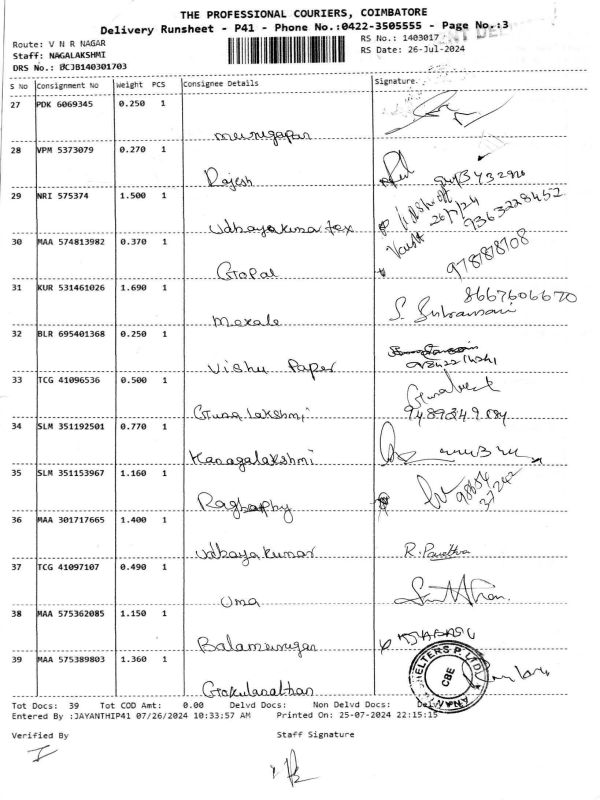 THE PROFESSIONAL COURIERS, COIMBATORE
Delivery Runsheet - P41 - Phone No.:0422-3505555 - Page No.:3
Route: V N R NAGAR
RS No.: 1403017
Staff: NAGALAKSHMI
RS Date: 26-Jul-2024
DRS No.: BCJB140301703
S No Consignment No Weight PCS Consignee Details Signature
27 PDK 6069345 0.250 1
murugapan
28 VPM 5373079 0.270 1
Rajesh
29 NRI 575374 1.500 1
26/7/24
9363228452
Udhayakumar tex
30 MAA 574813982 0.370 1
Gopal
31 KUR 531461026 1.690 1
8667606670
S. Subramani
Mekala
32 BLR 695401368 0.250 1
Vishu Paper
33 TCG 41096536 0.500 1
Guna lakshmi
34 SLM 351192501 0.770 1
Kanagalakshmi
35 SLM 351153967 1.160 1
98656
37242
36 MAA 301717665 1.400 1
Udhayakumar
37 TCG 41097107 0.490 1
Uma
38 MAA 575362085 1.150 1
Balamurugan
39 MAA 575389803 1.360 1
SHELTERS P. LTD
CBE
Gokulanathan
Tot Docs: 39 Tot COD Amt: 0.00 Delvd Docs: Non Delvd Docs:
Entered By :JAYANTHIP41 07/26/2024 10:33:57 AM Printed On: 25-07-2024 22:15:15
Verified By Staff Signature